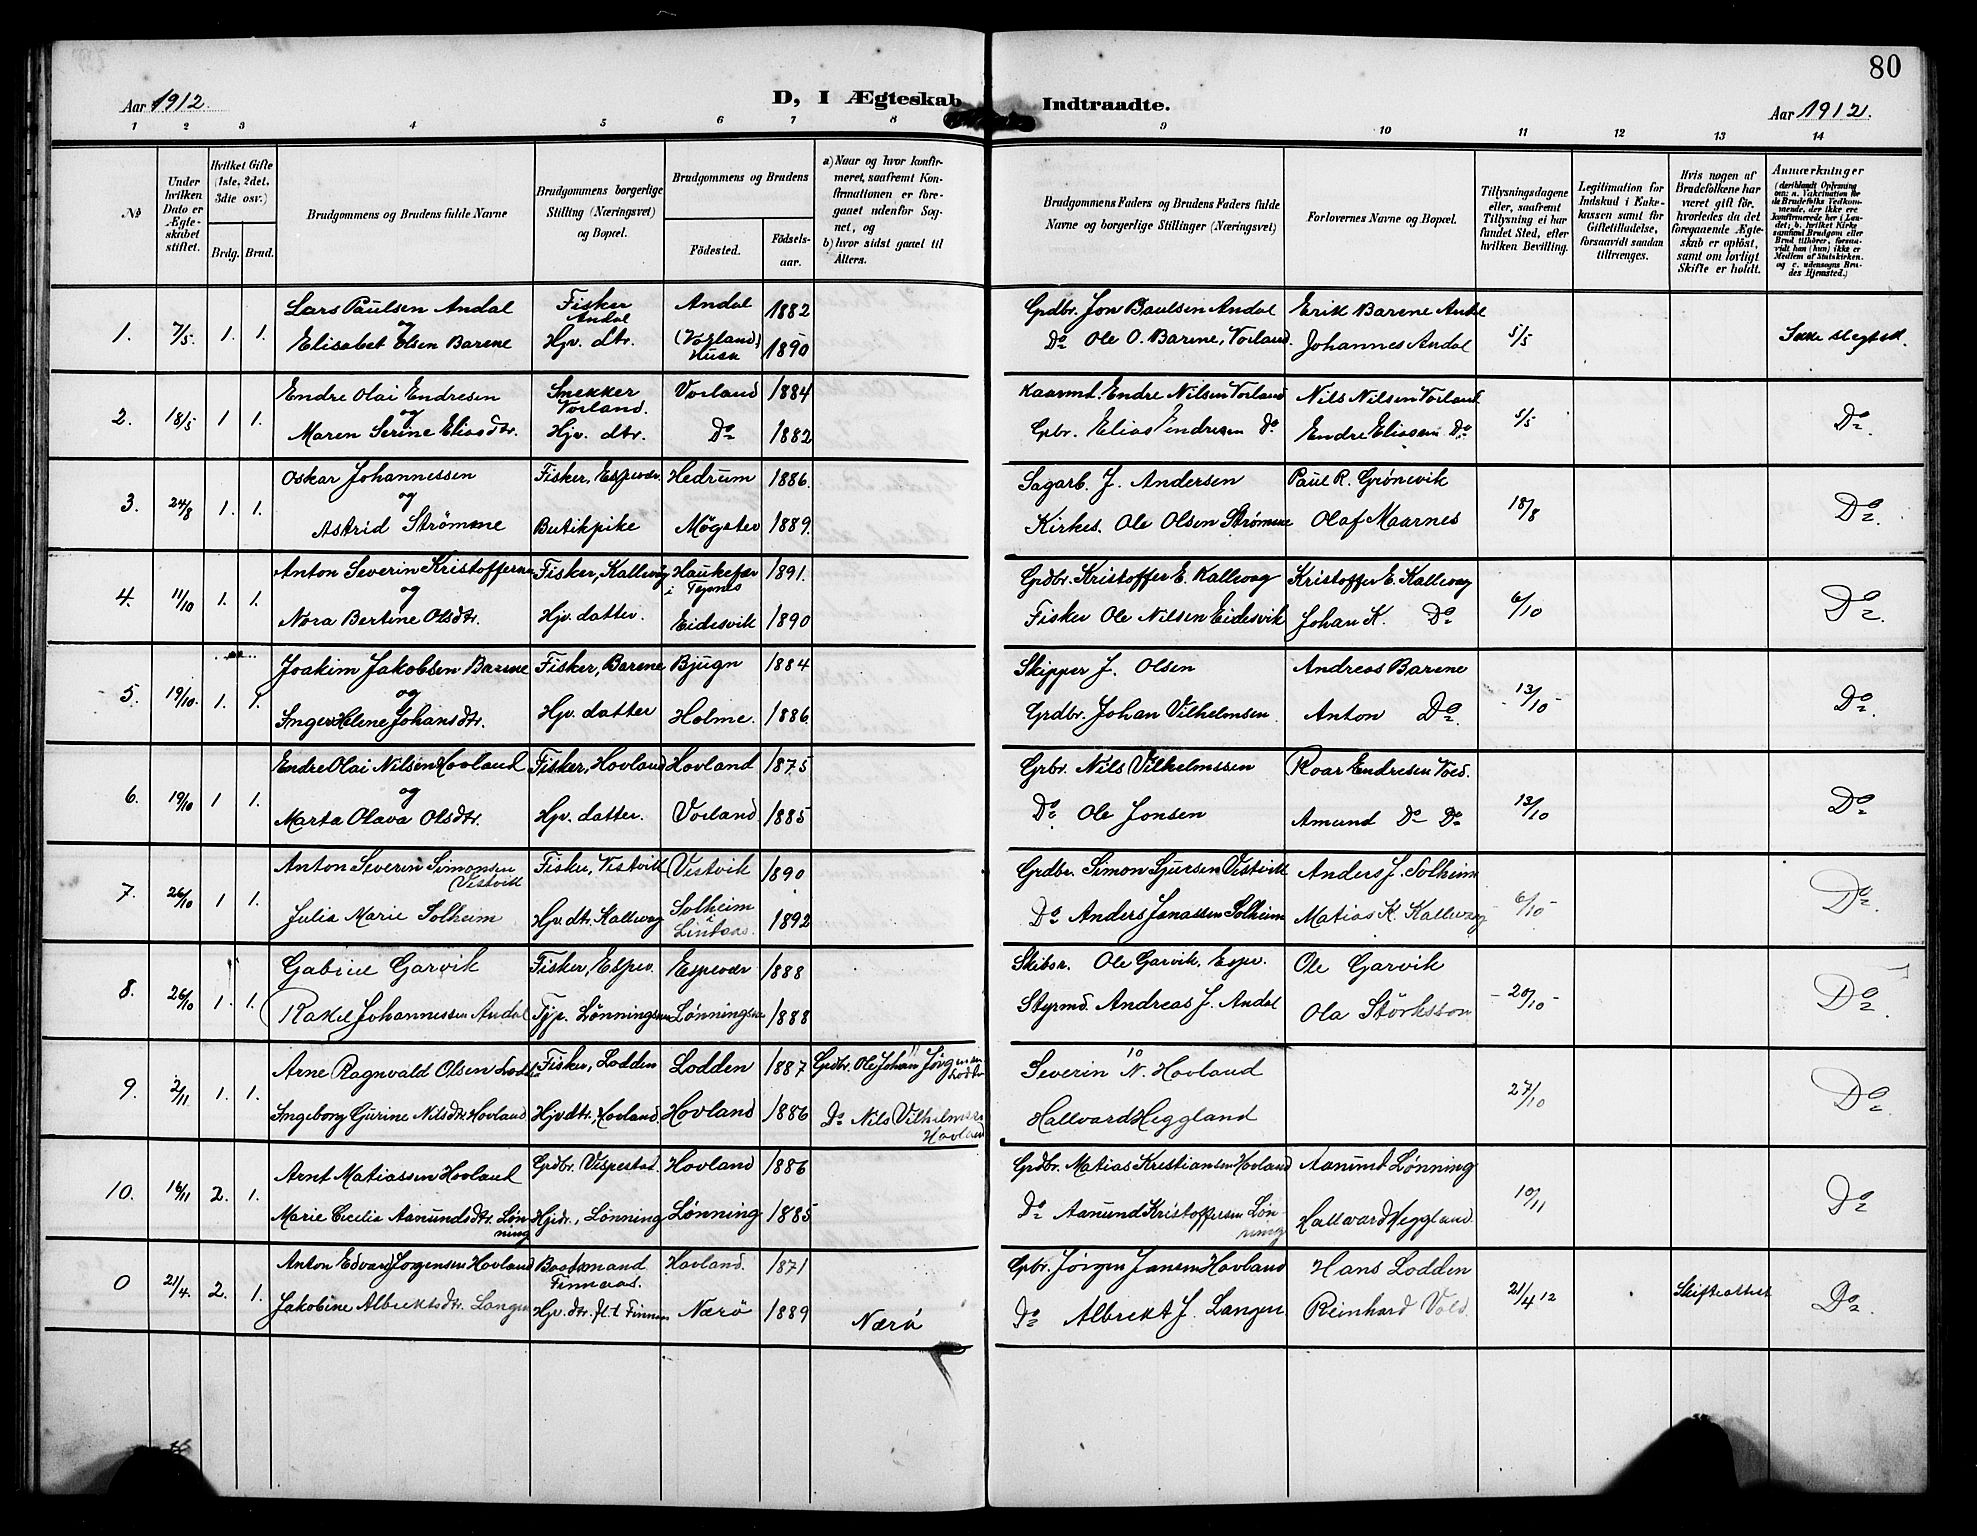 80
Aar 1912.
D, I Ægteskab Indtraadte.
Aar 1912.
1 2 3 4 5 6 7 8 9 10 11 12 13 14
№
Under hvilken Dato er Ægteskabet stiftet.
Hvilket Gifte (1ste, 2det, 3die osv.)
Brdg. Brud.
Brudgommens og Brudens fulde Navne
Brudgommens borgerlige Stilling (Næringsvei) og Bopæl.
Brudgommens og Brudens
Fødested.
Fødsels-aar.
a) Naar og hvor konfirmeret, saafremt Konfirmationen er foregaaet udenfor Sognet, og
b) hvor sidst gaaet til Alters.
Brudgommens Faders og Brudens Faders fulde Navne og borgerlige Stillinger (Næringsvei)
Forlovernes Navne og Bopæl.
Tillysningsdagene eller, saafremt Tillysning ei har fundet Sted, efter hvilken Bevilling.
Legitimation for Indskud i Enkekassen samt for Giftetilladelse, forsaavidt saadan tiltrænges.
Hvis nogen af Brudefolkene har været gift før, hvorledes da det foregaaende Ægteskab er opløst, samt om lovligt Skifte er holdt.
Anmærkninger
(deriblandt Oplysning om: a. Vakcination for de Brudefolks Vedkommende, der ikke ere konfirmerede her i Landet; b. hvilket Kirkesamfund Brudgom eller Brud tilhører, forsaavidt han (hun) ikke er Medlem af Statskirken, og c. udensogns Brudes Hjemsted.)
1. 7/5. 1. 1. Lars Paulsen Andal Fisker Andal Andal 1882 Grdbr. Jon Paulsen Andal Erik Barene 5/5 Ikke slegtsk.
og
Elisabet Olsen Barene Hjv. dtr. (Vorland) Husa 1890 Do Ole O. Barene, Vorland. Johannes Andal
2. 18/5 1 1. Endre Olai Endresen Snekker Vorland. Vorland 1884 Kaarmd. Endre Nilsen Vorland Nils Nilsen Vorland. 5/5 Do.
og
Maren Serine Eliasdtr. Hjv. dtr. Do 1882 Grbr. Elias Endresen Do Endre Eliasen Do
3. 24/8 1. 1. Oskar Johannessen Fisker, Espevær. Hedrum 1886. Sagarb. J. Andersen Paul R. Grønevik 18/8 Do.
og
Astrid Strömme Butikpike Møgster 1889. Kirkes. Ole Olsen Strømme Olaf Maarnes
4. 11/10 1. 1. Anton Severin Kristoffersen Fisker, Kallevåg Haukefær i Tysnes 1891. Grdbr. Kristoffer E. Kallevag Kristoffer E. Kallevag 6/10 Do.
og
Nora Bertine Olsdtr. Hjv. datter. Eidesvik 1890 Fisker Ole Nilsen Eidesvik Johan K. Do
5. 19/10. 1. 1. Joakim Jakobsen Barene Fisker, Barene Bjugn 1884 Skipper J. Olsen Andreas Barene 13/10 Do.
og
Inger Helene Johansdtr. Hjv. datter Holme. 1886. Grdbr. Johan Vilhelmsen Anton Do.
6. 19/10 1 1. Endre Olai Nilsen Hovland Fisker, Hovland Hovland 1875 Grbr. Nils Vilhelmssen Roar Endresen 13/10 Do
og
Marta Olava Olsdtr. Hjv. datter. Vorland 1885 Do. Ole Jonsen Amund Do Do
7. 26/10 1 1. Anton Severin Simonsen Vestvik Fisker, Vestvik Vestvik 1890 Grdbr. Simon Sjursen Vestvik Anders J. Solheim 6/10 Do.
Julia Marie Solheim Hjv. dtr. Kallevag Solheim i Lindaas. 1892 Do Anders Jonassen Solheim Matias K. Kallevaag
8. 26/10 1. 1. Gabriel Garvik Fisker, Espev. Espevær 1888 Skibsr. Ole Garvik, Espev. Ole Garvik - 20/10 - Do.
Rakel Johannessen Andal Tjp. Lønningshn Lønningshn 1888 Styrmd. Andreas J. Andal Ola Störksson
9. 2/11 1. 1. Arne Ragnvald Olsen Lodden Fisker, Lodden Lodden 1887 Grdbr. Ole Johan Jörgensen Lodden Severin N. Hovland 27/10 Do.
Ingeborg Gurine Nilsdtr. Hovland Hjvdtr., Hovland Hovland 1886 Do Nils Vilhelmsen Hovland Hallvard Heggland
10. 16/11 2. 1. Arnt Matiassen Hovland Grdbr. Vespestad. Hovland 1886 Grdbr. Matias Kristiansen Hovland Aamund Lønning 10/11 Do
Marie Cecilia Aamundsdtr. Lønning Hjvdr., Lønning Lønning 1885 Do Aamund Kristoffersen Lønning Hallvard Heggland
0 21/4. 2. 1. Anton Edvard Jørgensen Hovland Baatsmand Finneraas. Hovland. 1871 Grbr. Jørgen Jansen Hovland Hans Lodden 21/4 12 Skifteattest Do.
Jakobine Albrektsdtr. Langen Hjv. dtr. Nærö 1889 Nærö Do Albrekt J. Langen Reinhard Vold